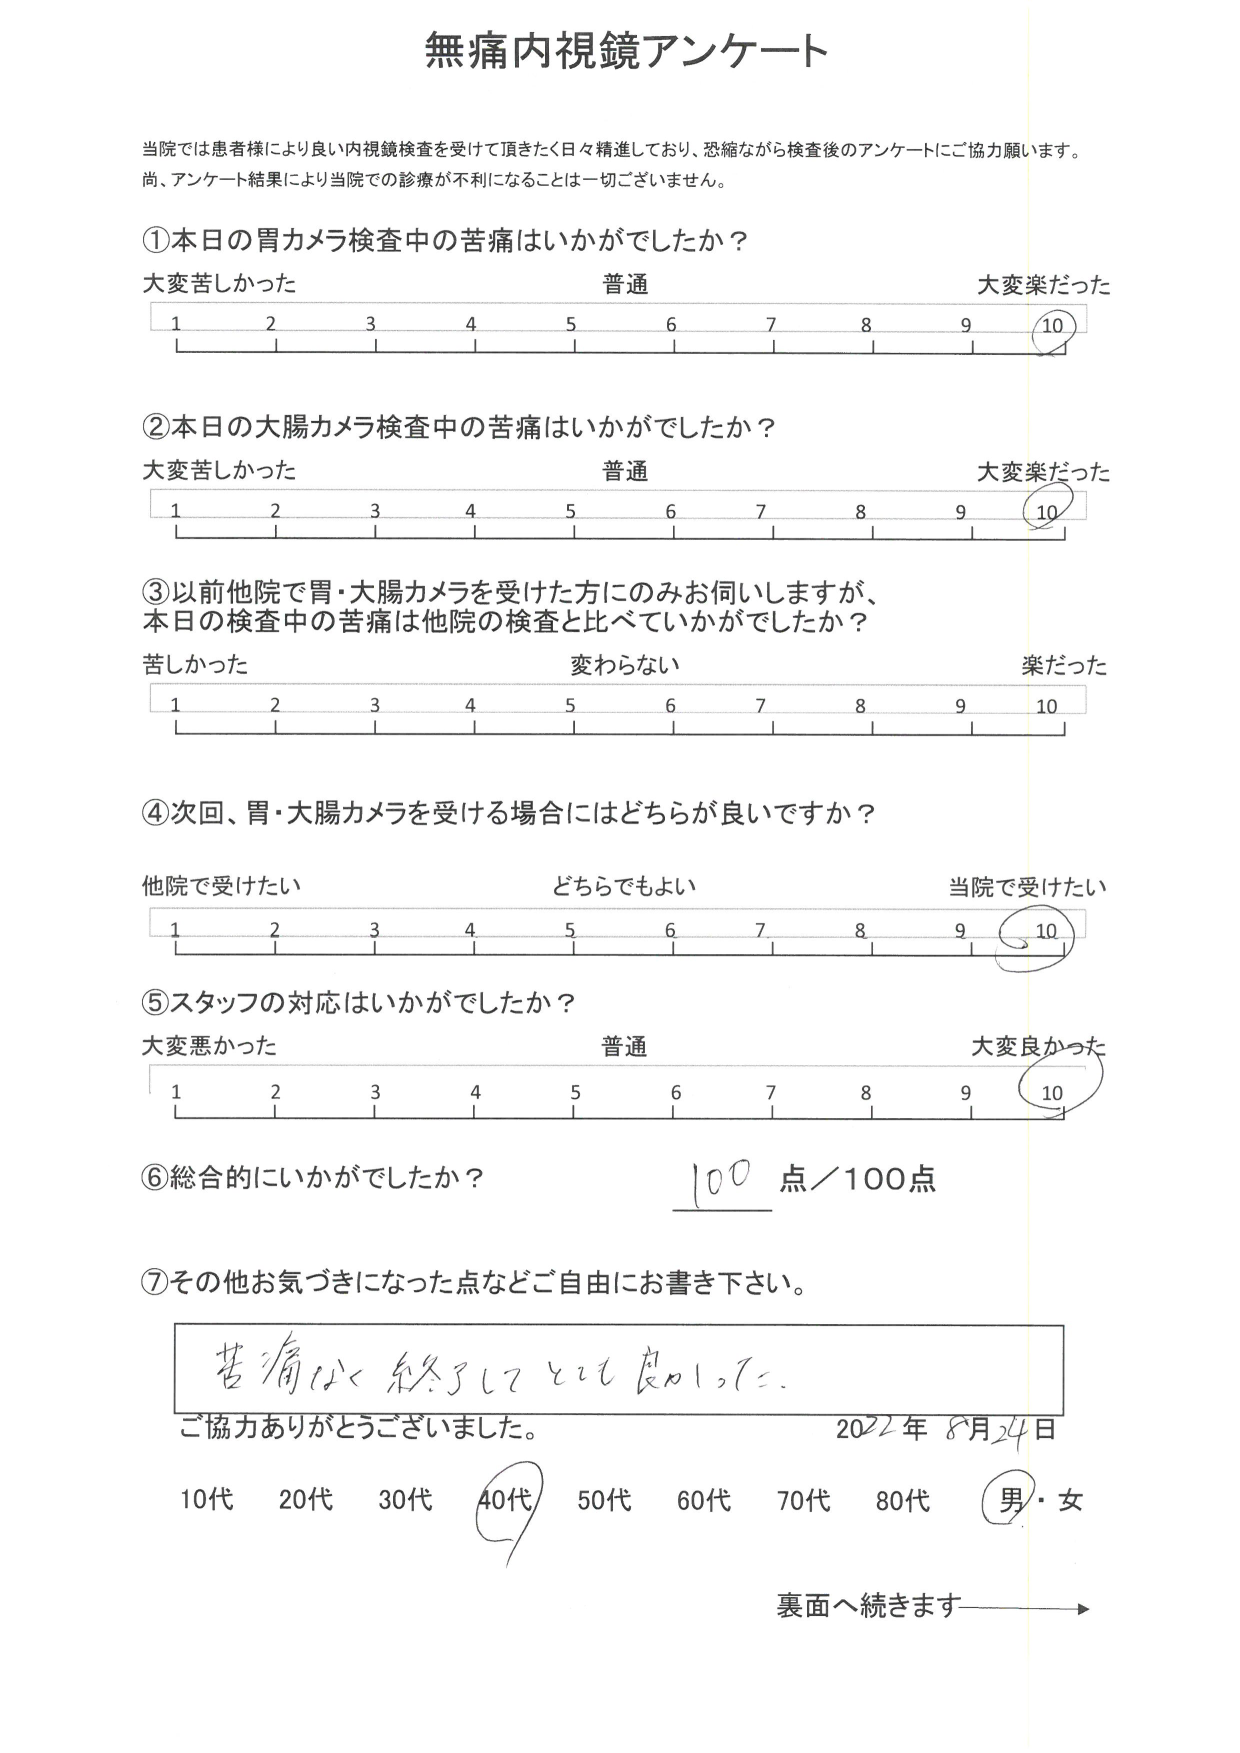 無痛内視鏡アンケート
当院では患者様により良い内視鏡検査を受けて頂きたく日々精進しており、恐縮ながら検査後のアンケートにご協力願います。
尚、アンケート結果により当院での診療が不利になることは一切ございません。
①本日の胃カメラ検査中の苦痛はいかがでしたか？
大変苦しかった 普通 大変楽だった
1 2 3 4 5 6 7 8 9 10
②本日の大腸カメラ検査中の苦痛はいかがでしたか？
大変苦しかった 普通 大変楽だった
1 2 3 4 5 6 7 8 9 10
③以前他院で胃・大腸カメラを受けた方にのみお伺いしますが、
本日の検査中の苦痛は他院の検査と比べていかがでしたか？
苦しかった 変わらない 楽だった
1 2 3 4 5 6 7 8 9 10
④次回、胃・大腸カメラを受ける場合にはどちらが良いですか？
他院で受けたい どちらでもよい 当院で受けたい
1 2 3 4 5 6 7 8 9 10
⑤スタッフの対応はいかがでしたか？
大変悪かった 普通 大変良かった
1 2 3 4 5 6 7 8 9 10
⑥総合的にいかがでしたか？ 100 点／100点
⑦その他お気づきになった点などご自由にお書き下さい。
苦痛なく終了してとても良かった.
ご協力ありがとうございました。 2022年 8月24日
10代 20代 30代 40代 50代 60代 70代 80代 男・女
裏面へ続きます